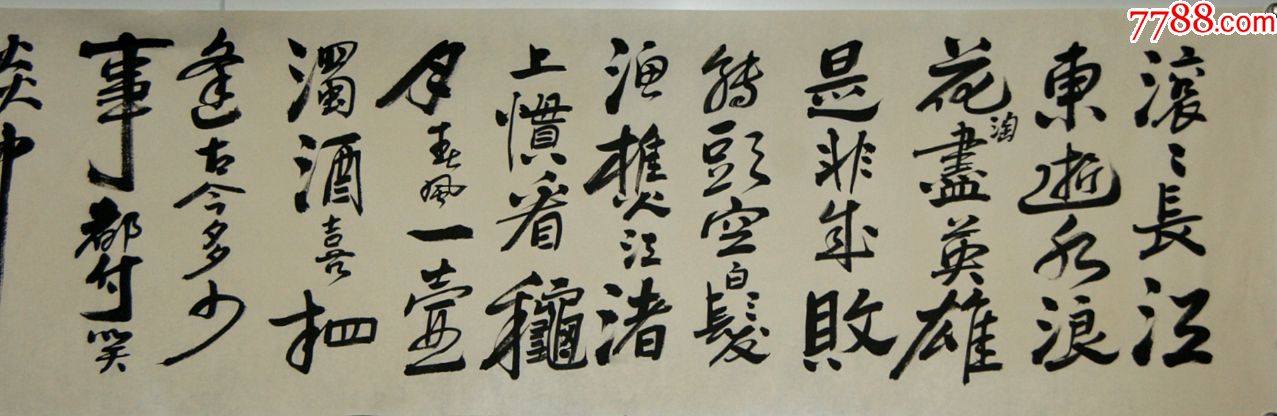 7788.com
滾〻長江
東逝水浪
花淘盡英雄
是非成敗
轉頭空白髮
漁樵江渚
上慣看龝
月春風一壺
濁酒喜相
逢古今多少
事都付笑
談中